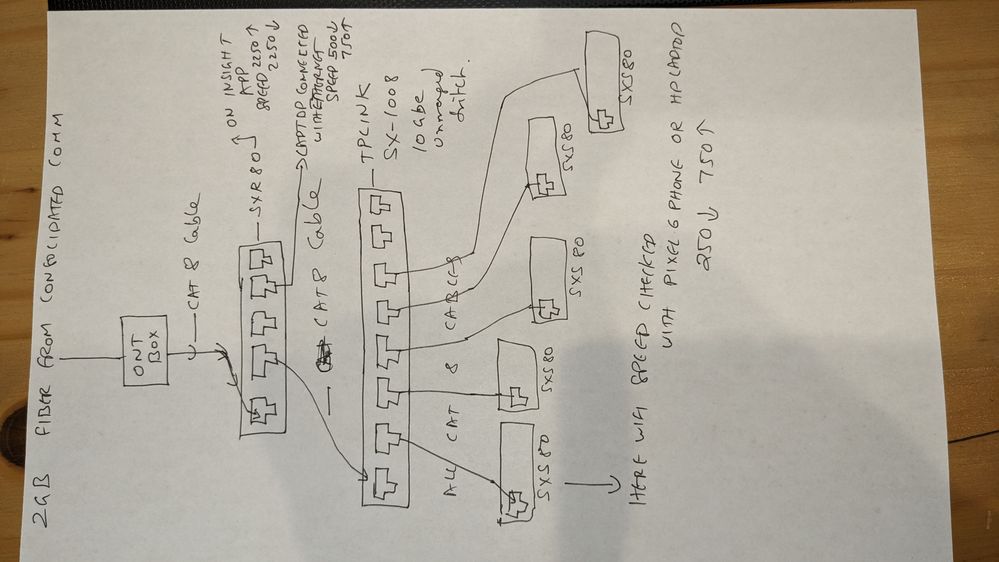 2GB FIBER FROM CONSOLIDATED COMM
ONT
BOX
CAT 8 Cable
SXR80
ON INSIGHT
APP
SPEED 2250↑
2250↓
LAPTOP CONNECTED
WITH ETHERNET
SPEED 500↓
750↑
CAT 8 Cable
TPLINK
SX-1008
10Gbe
Unmanaged
Switch.
ALL CAT 8 CABLES
SXS80
SXS80
SXS80
SXS80
SXS80
HERE WIFI SPEED CHECKED
WITH PIXEL 6 PHONE OR HP LAPTOP
250↓ 750↑